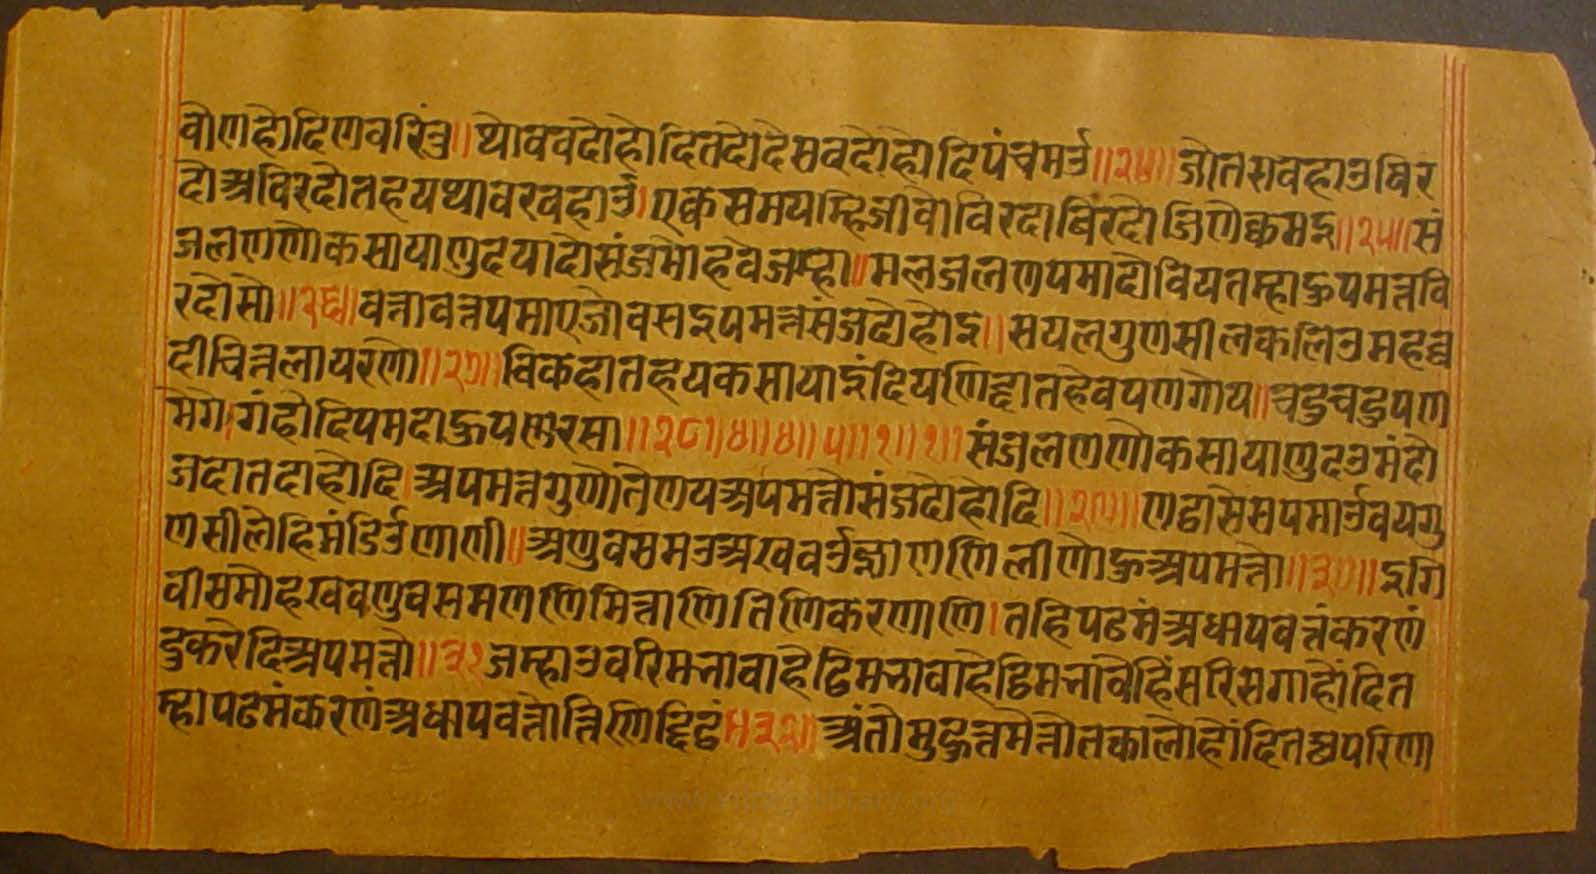 वोणहोदिणवरिंतु॥थोववदोहोदितदोदेसवदोहोदिपंचमउ॥३०॥जोतसवहाउविर
दोअविरदोतहयथावरवहाउ।एक्कसमयाम्हिजीवोविरदाविरदोजिणेक्कमइ॥३१॥सं
जलणणोकसायाणुदयादोसंजमोहवेजम्हा॥मलजलणपमादोवियतम्हाहुपमत्तवि
रदोसो॥३२॥वत्तावत्तपमाएजोवसइपमत्तसंजदोहोइ॥सयलगुणसीलकलिउमहव्व
दीचित्तलायरणो॥३३॥विकहातहयकसायाइंदियणिद्दातहेवपणगोय॥चदुचदुपण
मेगेगंहोदिपमदाहुपण्णरसा॥३४॥४॥४॥५॥१॥१॥संजलणणोकसायाणुदउमंदो
जदातदाहोदि।अपमत्तगुणोतेणयअपमत्तोसंजदोहोदि॥णट्ठासेसपमाउवयगु
णसीलेहिमंडिउणाणी॥अणुवसमउअखवउझाणणिलीणोहुअपमत्तो॥इगि
वीसमोहखवणुवसमणणिमित्ताणितिणिकरणाणि।तहिपढमंअधापवत्तंकरणं
दुकरेदिअपमत्तो॥जम्हाउवरिमत्तावाहेट्ठिमत्तावाहेट्ठिमत्तावेहिंसरिसगाहोंदित
म्हापढमंकरणंअधापवत्तोत्तिणिद्दिट्ठं॥अंतोमुहुत्तमेत्तोतकालोहोंदितछपरिणा